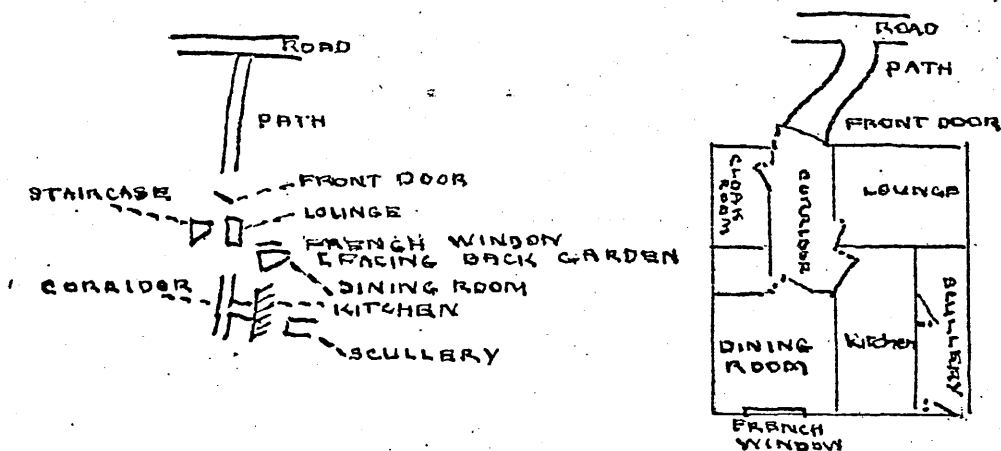 ROAD
PATH
STAIRCASE
FRONT DOOR
LOUNGE
FRENCH WINDOW
(FACING BACK GARDEN
DINING ROOM
CORRIDOR
KITCHEN
SCULLERY
ROAD
PATH
FRONT DOOR
CLOAK
ROOM
CORRIDOR
LOUNGE
DINING
ROOM
Kitchen
SCULLERY
FRENCH
WINDOW